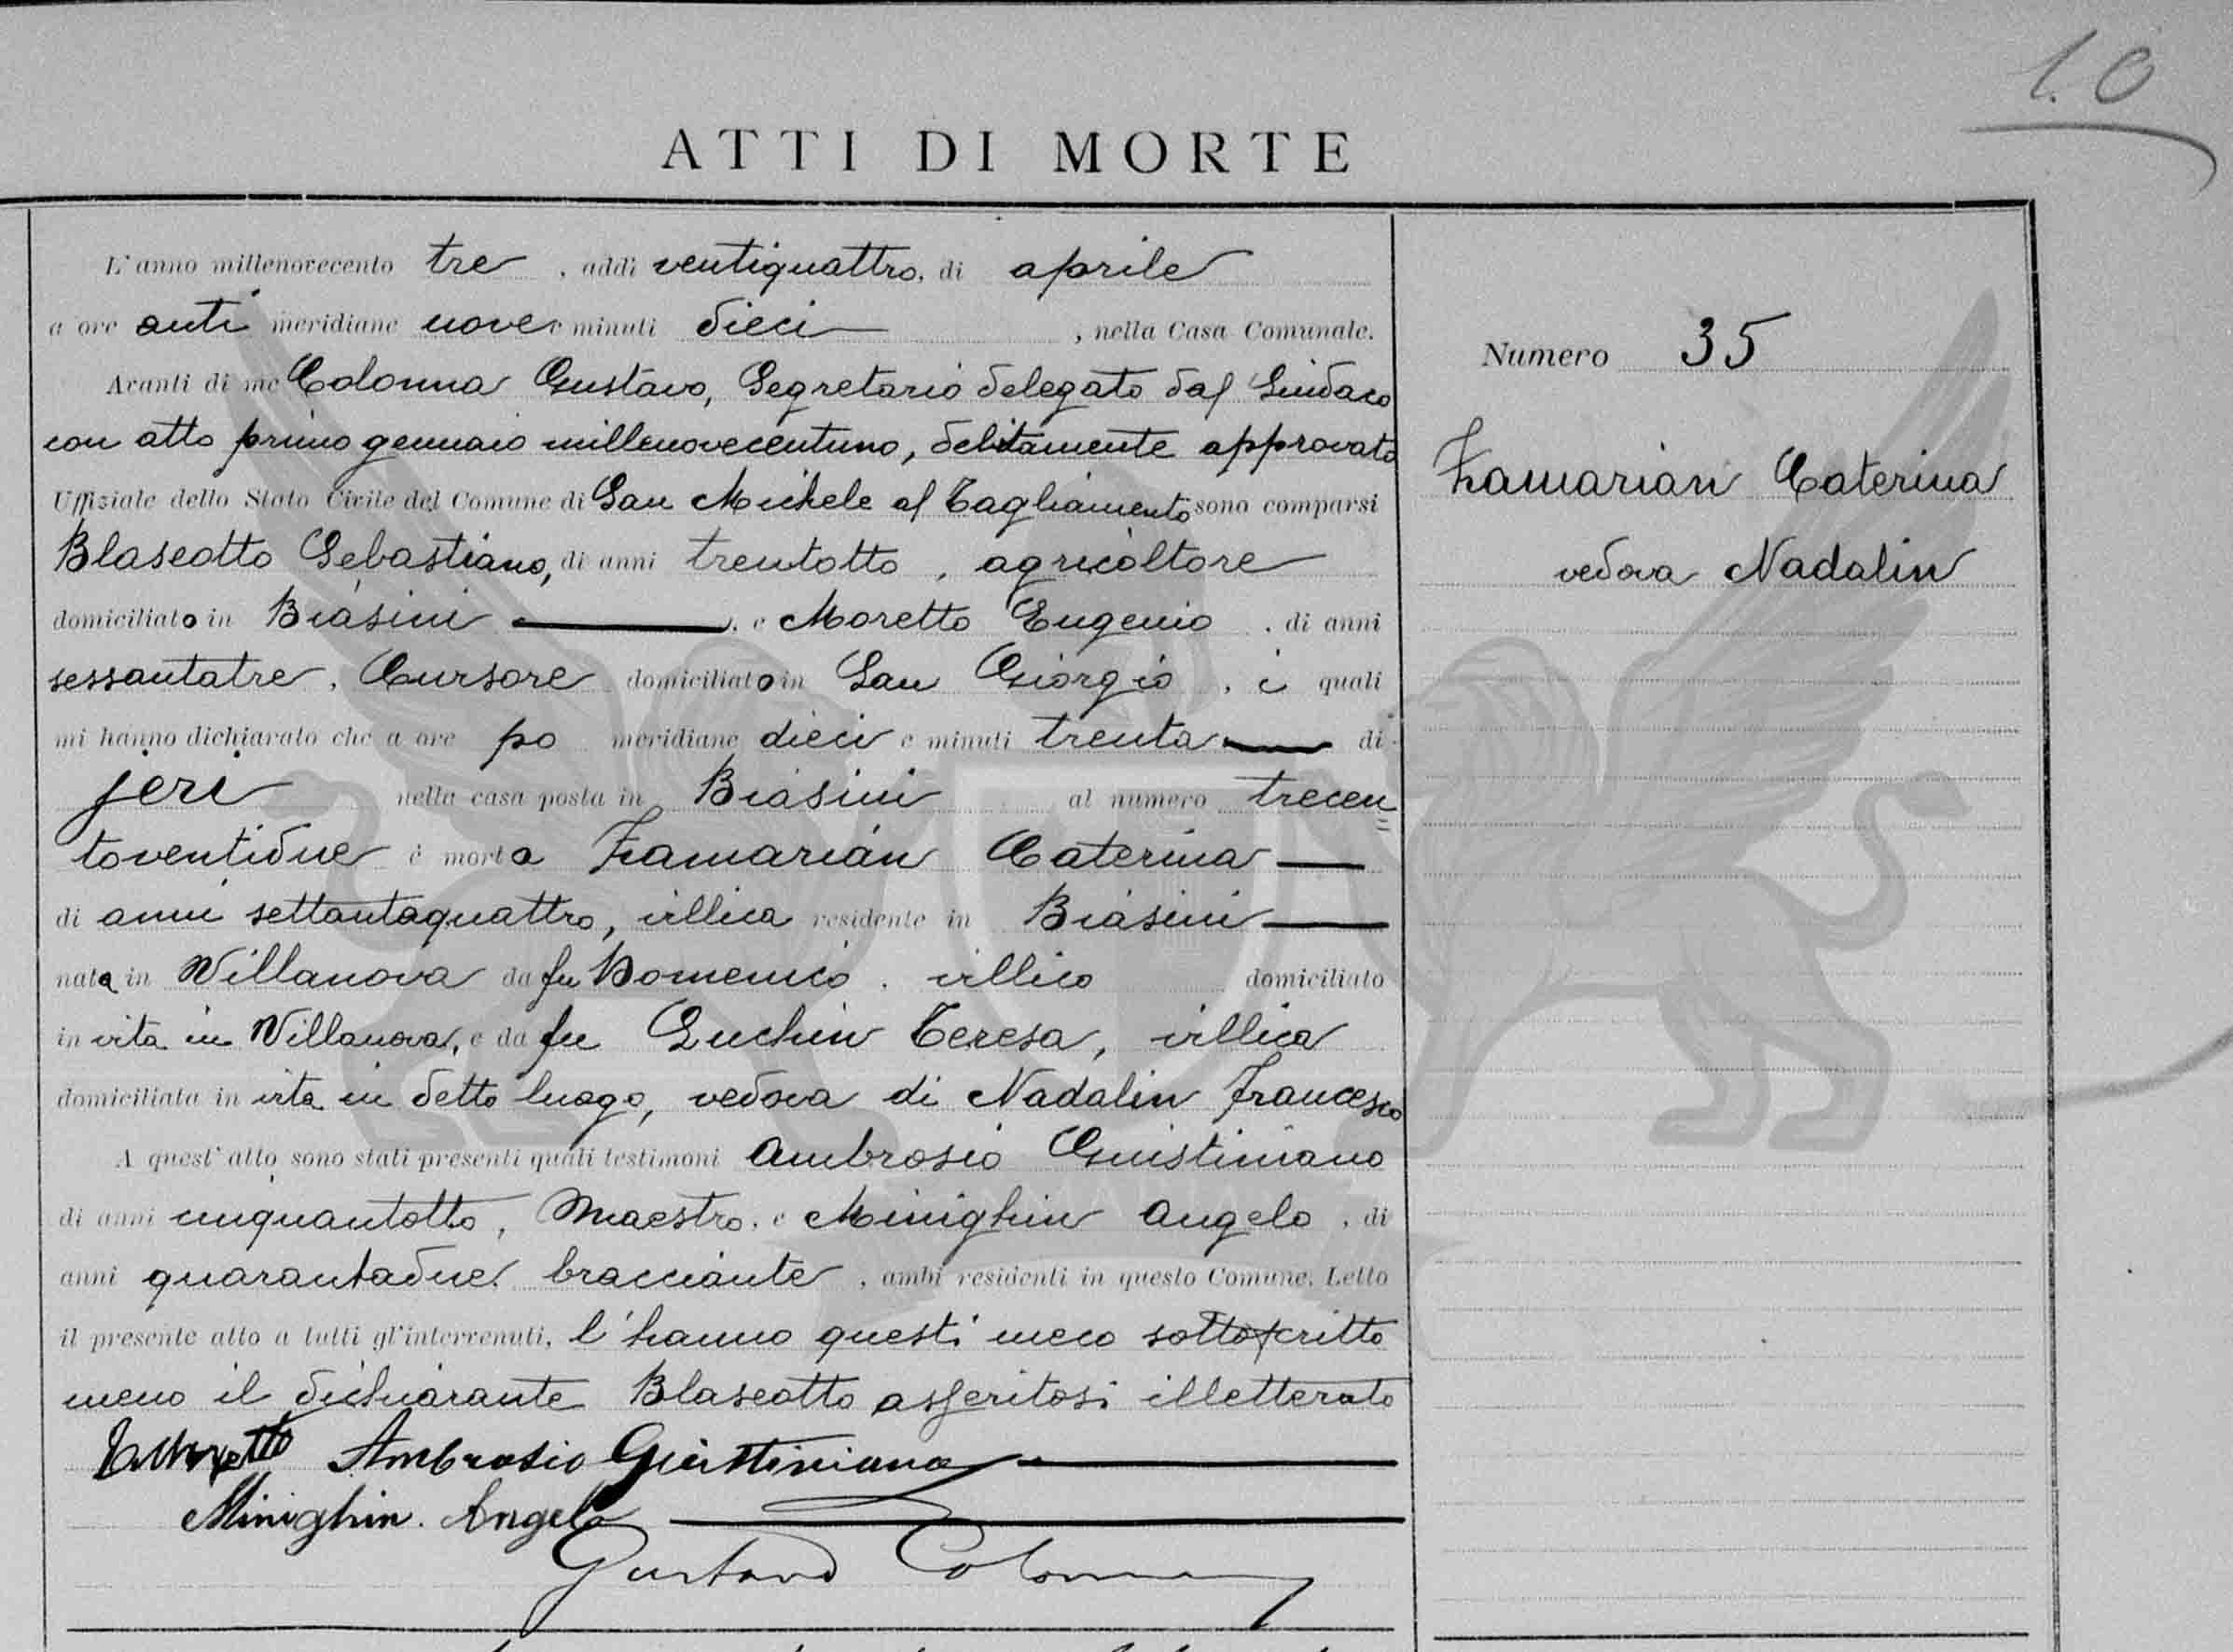 1.0
ATTI DI MORTE
L'anno millenovecento tre, addì ventiquattro, di aprile
a ore anti meridiane nove e minuti dieci, nella Casa Comunale.
Avanti di me Colonna Gustavo, Segretario delegato dal Sindaco
con atto primo gennaio millenovecentuno, debitamente approvato
Uffiziale dello Stato Civile del Comune di San Michele al Tagliamento sono comparsi
Blaseotto Sebastiano, di anni trentotto, agricoltore
domiciliato in Biasini, e Moretto Eugenio, di anni
sessantatre, Cursore domiciliato in San Giorgio, i quali
mi hanno dichiarato che a ore po meridiane dieci e minuti trenta di
jeri nella casa posta in Biasini al numero trecen
toventidue è morta Zamarian Caterina
di anni settantaquattro, villica residente in Biasini
nata in Villanova da fu Domenico, villico domiciliato
in vita in Villanova, e da fu Luchin Teresa, villica
domiciliata in vita in detto luogo, vedova di Nadalin Francesco
A quest'atto sono stati presenti quali testimoni Ambrosio Giustiniano
di anni cinquantotto, Maestro, e Minighin Angelo, di
anni quarantadue, bracciante, ambi residenti in questo Comune. Letto
il presente atto a tutti gl'intervenuti, l'hanno questi meco sottoscritto
meno il dichiarante Blaseotto asseritosi illetterato
Ambrosio Giustiniano
Minighin Angelo
Gustavo Colonna
Numero 35
Zamarian Caterina
vedova Nadalin